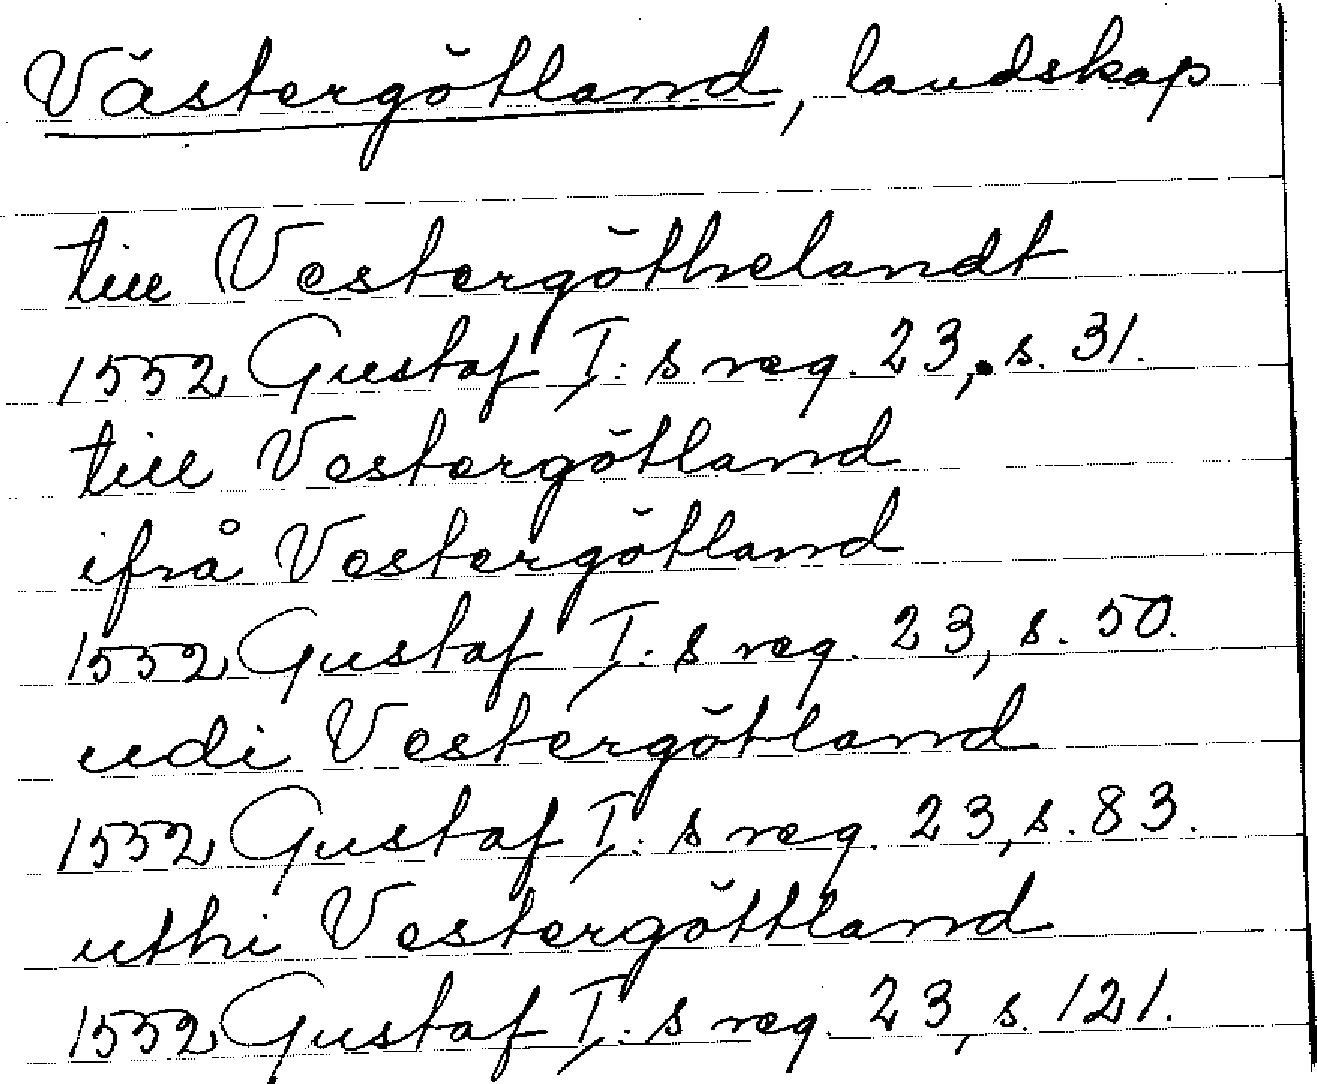 Västergötland, landskap
till Vestergöthelandt
1552 Gustaf I:s reg. 23, s. 31.
till Vestergötland
ifrå Vestergötland
1552 Gustaf I:s reg. 23, s. 50.
udi Vestergötland
1552 Gustaf I:s reg. 23, s. 83.
uthi Vestergöttland
1552 Gustaf I:s reg. 23, s. 121.